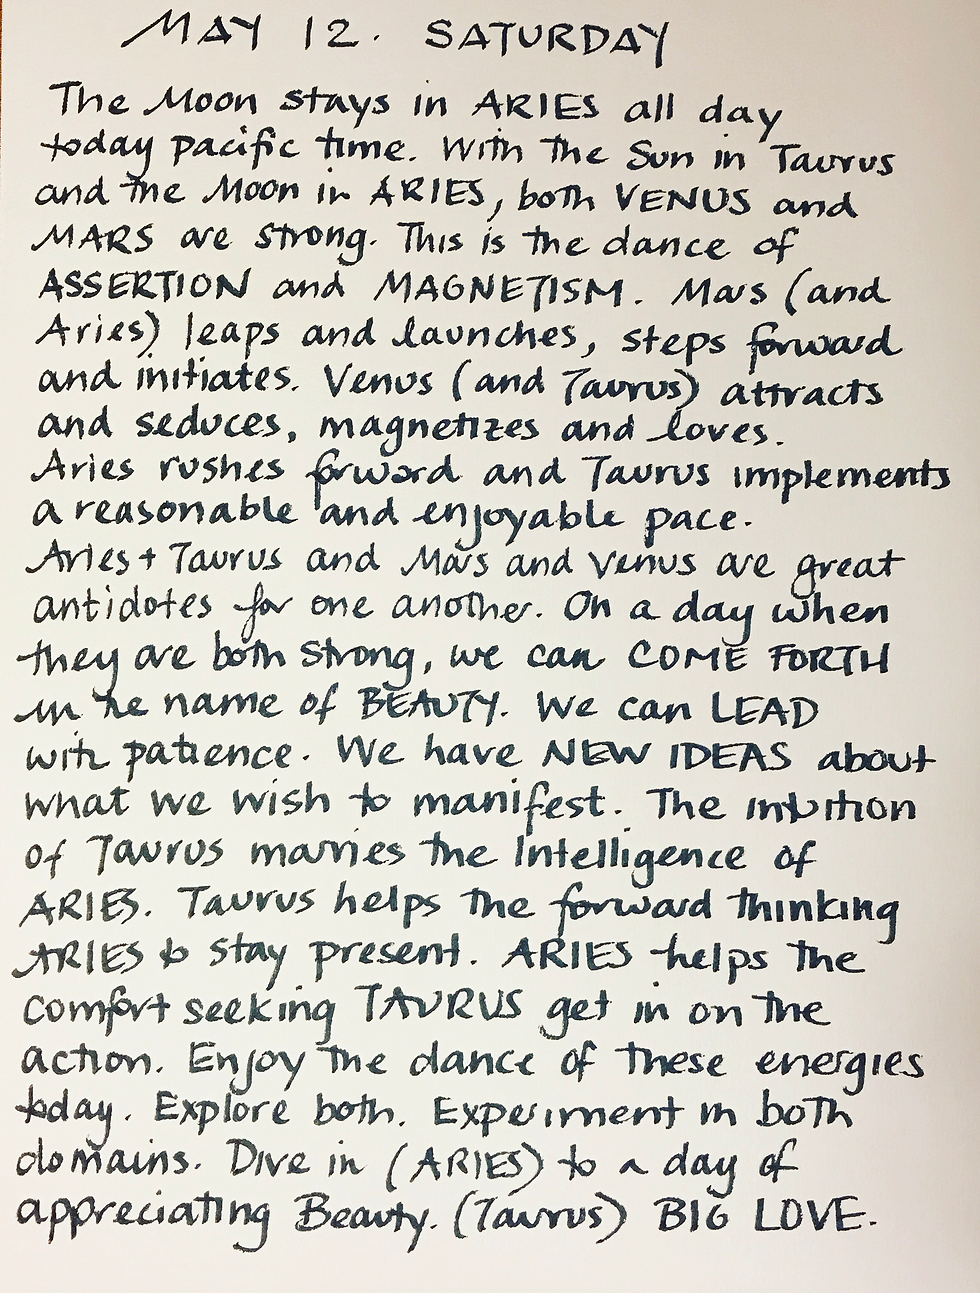 MAY 12. SATURDAY
The Moon stays in ARIES all day
today pacific time. With the Sun in Taurus
and the Moon in ARIES, both VENUS and
MARS are strong. This is the dance of
ASSERTION and MAGNETISM. Mars (and
Aries) leaps and launches, steps forward
and initiates. Venus (and Taurus) attracts
and seduces, magnetizes and loves.
Aries rushes forward and Taurus implements
a reasonable and enjoyable pace.
Aries + Taurus and Mars and Venus are great
antidotes for one another. On a day when
they are both strong, we can COME FORTH
in he name of BEAUTY. We can LEAD
with patience. We have NEW IDEAS about
what we wish to manifest. The intuition
of Taurus marries the Intelligence of
ARIES. Taurus helps the forward thinking
ARIES to stay present. ARIES helps the
comfort seeking TAURUS get in on the
action. Enjoy the dance of these energies
today. Explore both. Experiment in both
domains. Dive in (ARIES) to a day of
appreciating Beauty. (Taurus) BIG LOVE.